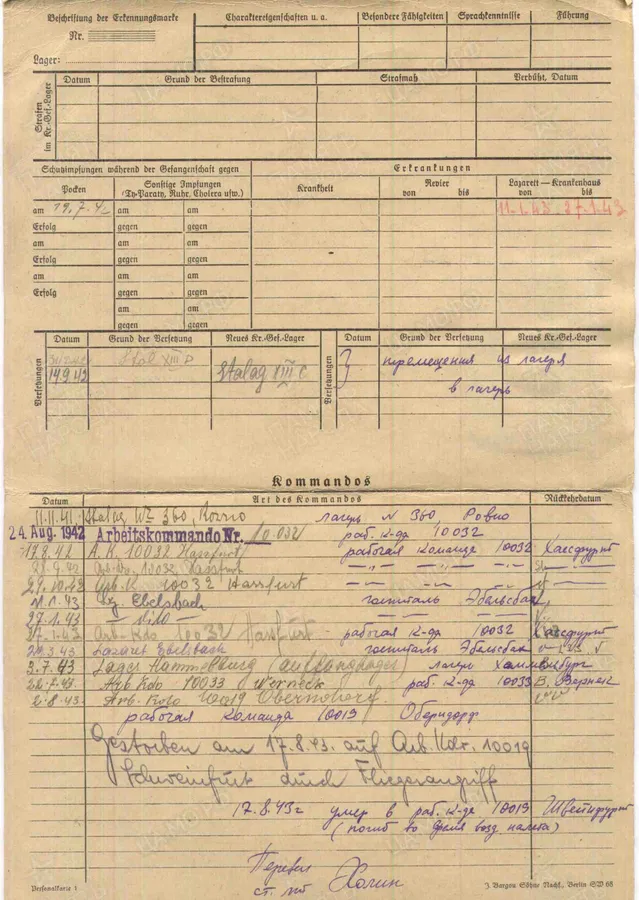 Beschriftung der Erkennungsmarke
Nr.
Lager:
Charaktereigenschaften u. a.
Besondere Fähigkeiten
Sprachkenntnisse
Führung
Strafen im Kr.-Gef.-Lager
Datum
Grund der Bestrafung
Strafmaß
Verbüßt, Datum
Schutzimpfungen während der Gefangenschaft gegen
Erkrankungen
Pocken
Sonstige Impfungen
(Ty-Paraty, Ruhr, Cholera usw.)
Krankheit
Revier
von bis
Lazarett — Krankenhaus
von bis
am 19.7.42 am am
11.1.43 27.1.43
Erfolg gegen gegen
am am am
Erfolg gegen gegen
am am am
Erfolg gegen gegen
am am
gegen gegen
Versetzungen
Datum
Grund der Versetzung
Neues Kr.-Gef.-Lager
Versetzungen
Datum
Grund der Versetzung
Neues Kr.-Gef.-Lager
Stal XIII D
14 9 42
Stalag XIII C
перемещения из лагеря
в лагерь
Kommandos
Datum
Art des Kommandos
Rückkehrdatum
11.11.41 Stalag 360, Rowno лагерь N 360 Ровно
24. Aug. 1942 Arbeitskommando Nr. 10 032 раб. к-да 10032
A. K. 10032 Hassfurt рабочая команда 10032 Хассфурт
10032 Hassfurt
10032 Hassfurt
11.1.43 Lz Ebelsbach госпиталь Эбельсбах
27.1.43 — dito —
27.1.43 Arb. Kdo 10032 Hassfurt рабочая к-да 10032 Хассфурт
Lazaret Ebelsbach госпиталь Эбельсбах
3.7.43 Lager Hammelburg лагерь Хаммельбург
Arb Kdo 10033 Werneck раб. к-да 10033 В. Вернек
2.8.43. Arb. Kdo 10019 Oberndorf
рабочая команда 10019 Оберндорф
Gestorben am 17.8.43. auf Arb. Kdr. 10019
Schweinfurt durch Fliegerangriff
17.8.43г умер в раб. к-де 10019 Швейнфурт
(погиб во время возд. налета)
Перевел
ст. Холин
Personalkarte 1
J. Bargou Söhne Nachf., Berlin SW 68